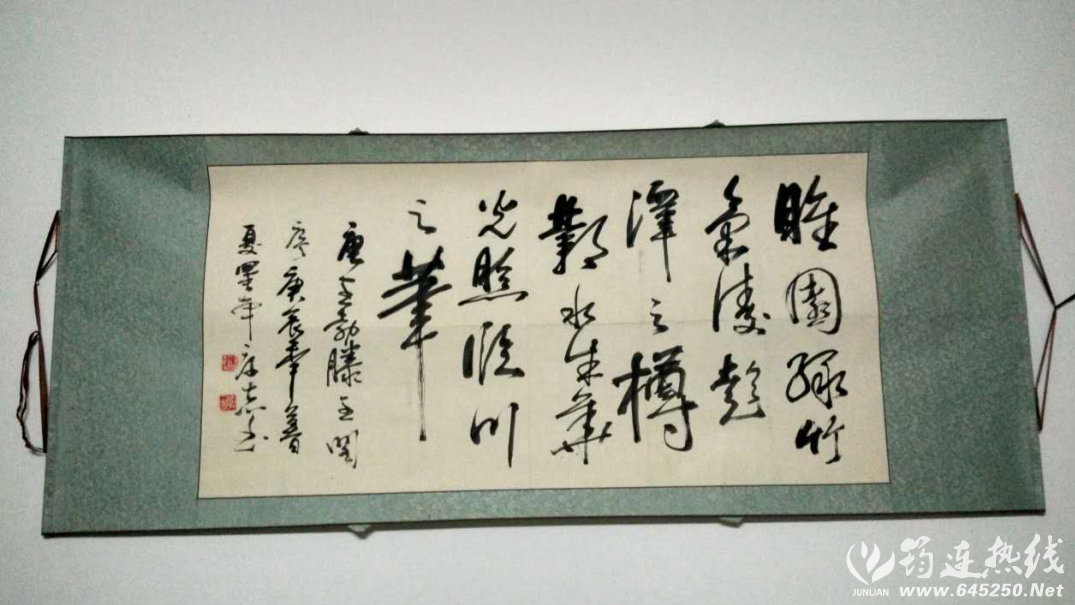 睢園緑竹
氣凌彭
澤之樽
鄴水朱華
光照臨川
之筆
唐王勃滕王閣
序庚辰年暮
夏
筠连热线
JUNLIAN www.645250.Net